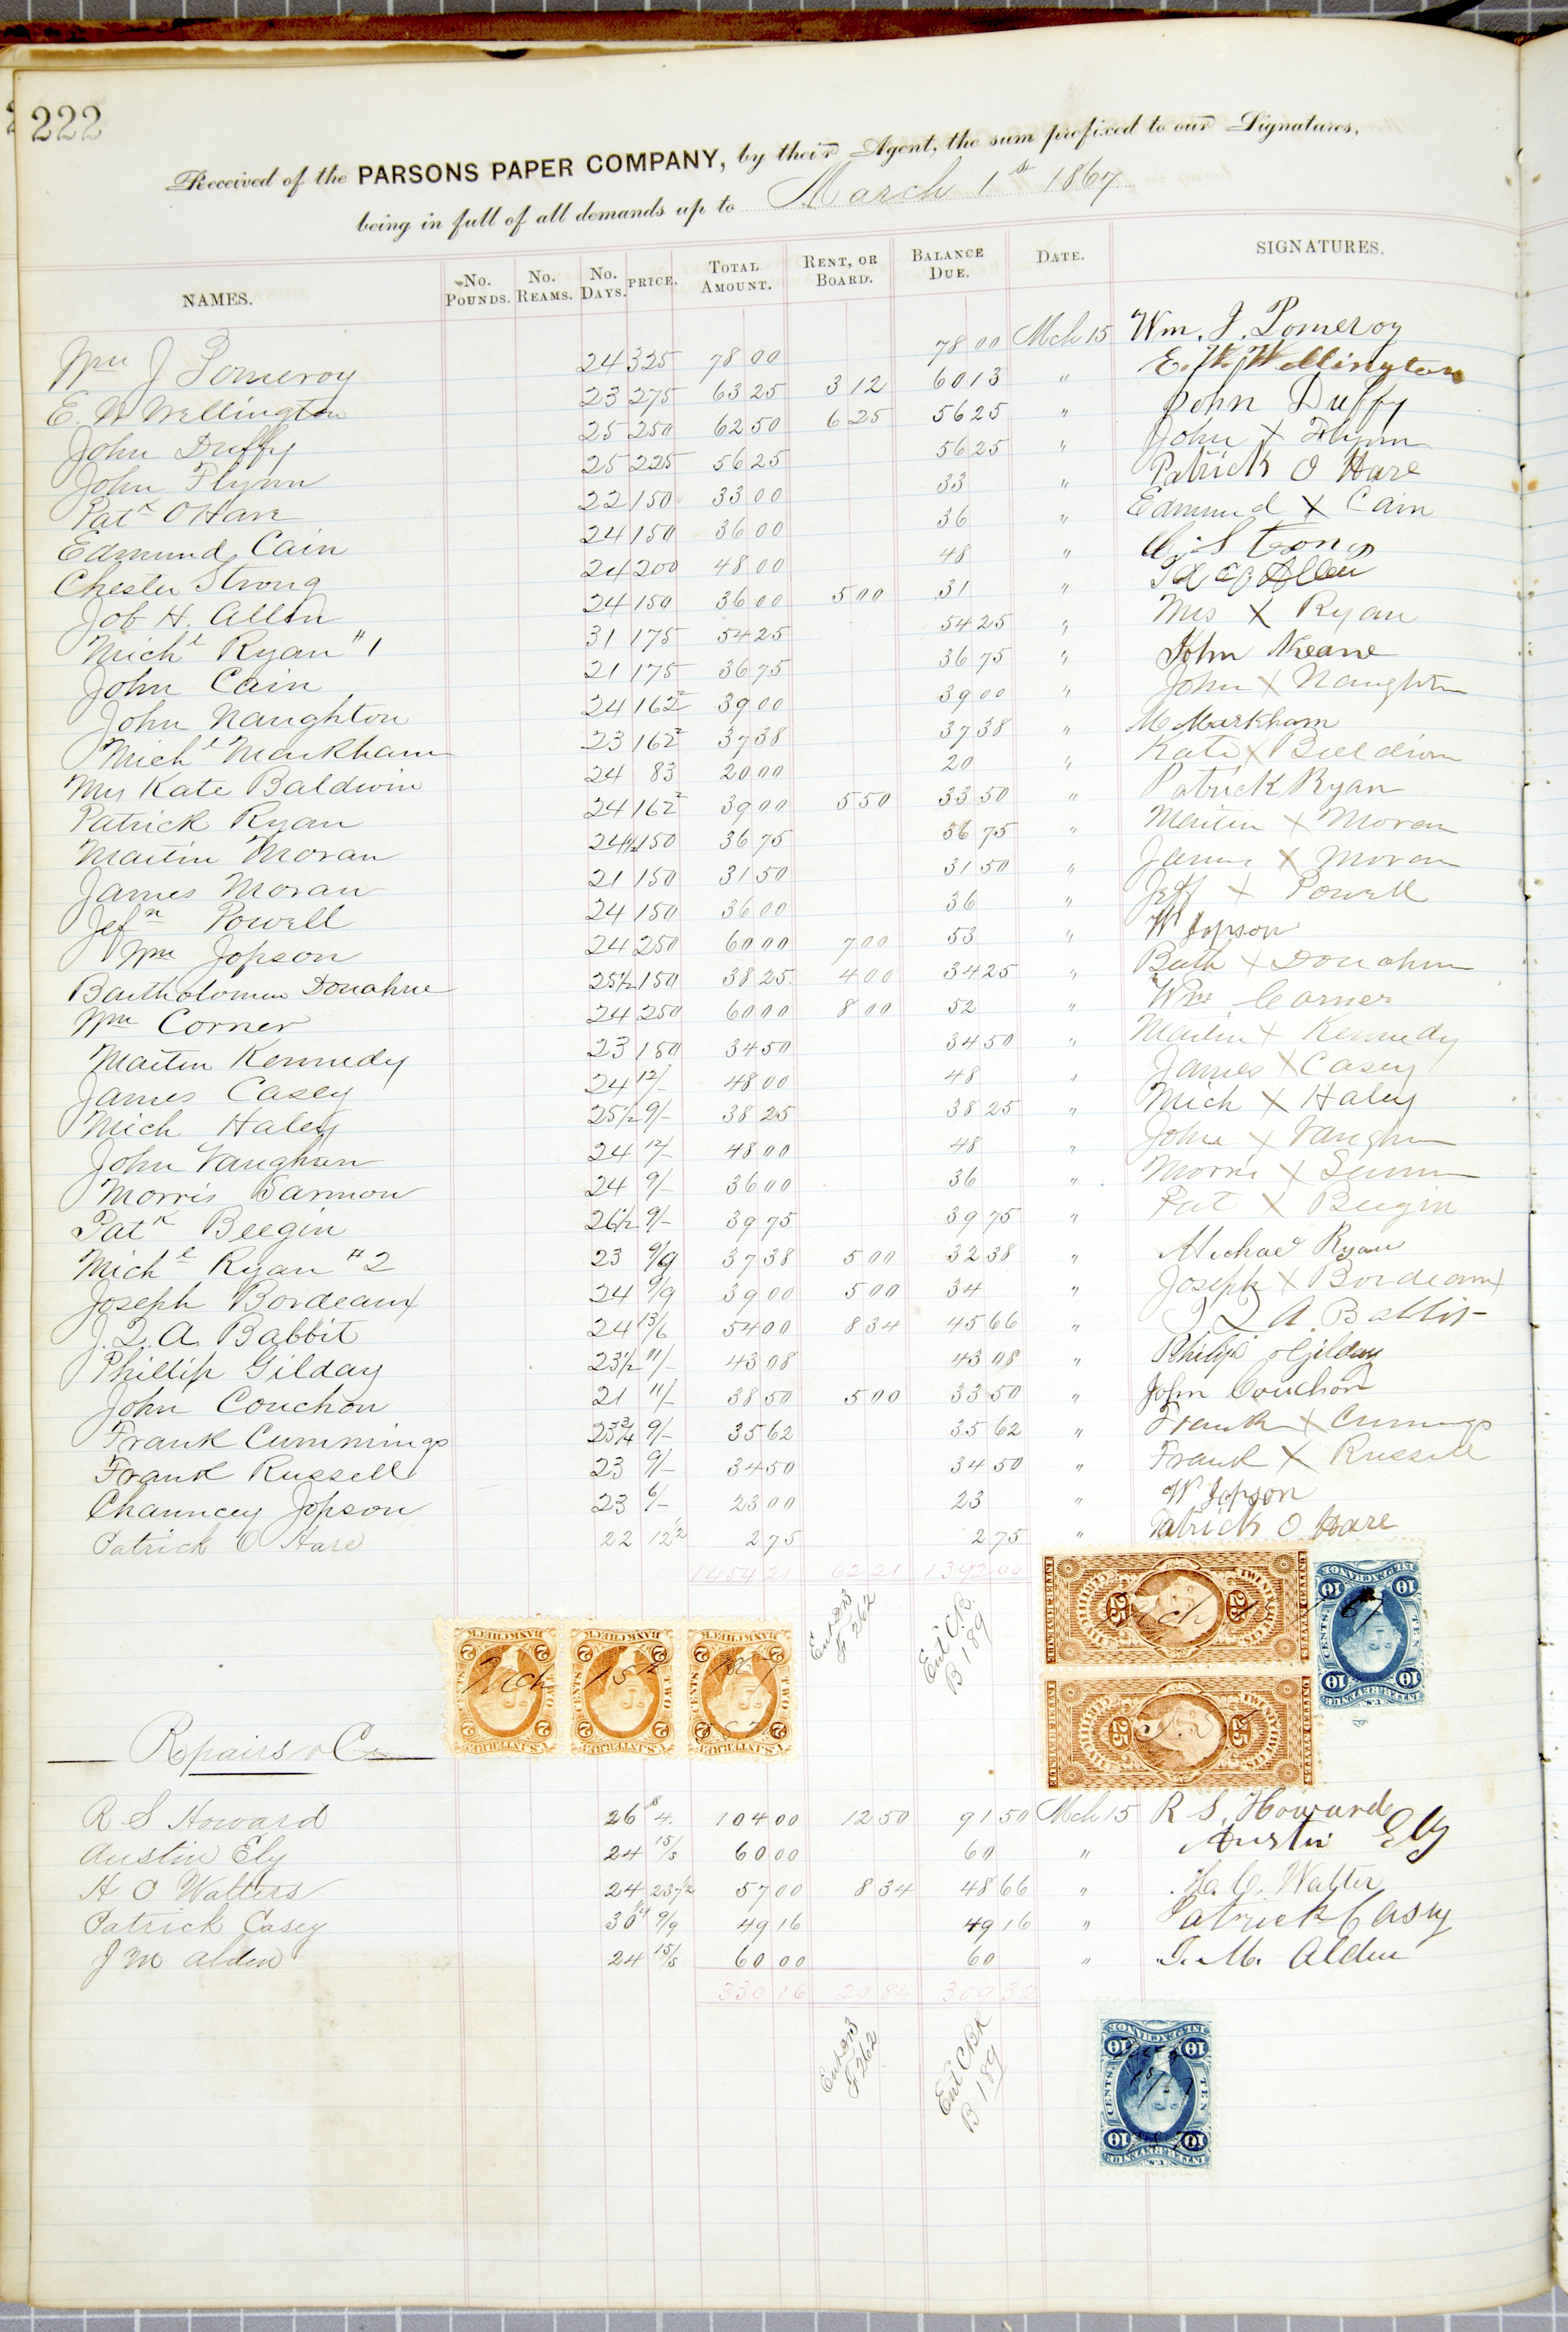 222
Received of the PARSONS PAPER COMPANY, by their Agent, the sum prefixed to our Signatures,
being in full of all demands up to March 1st 1867
NAMES. No. POUNDS. No. REAMS. No. DAYS. PRICE. TOTAL AMOUNT. RENT, OR BOARD. BALANCE DUE. DATE. SIGNATURES.
Wm J Pomeroy 24 325 78 00 78 00 Mch 15 Wm. J. Pomeroy
E. W Wellington 23 275 63 25 3 12 60 13 " E. W. Wellington
John Duffy 25 250 62 50 6 25 56 25 " John Duffy
John Flynn 25 225 56 25 56 25 " John X Flynn
Patk O Hare 22 150 33 00 33 " Patrick O Hare
Edmund Cain 24 150 36 00 36 " Edmund X Cain
Chester Strong 24 200 48 00 48 " C. Strong
Job H. Allen 24 150 36 00 5 00 31 " Allen
Michl Ryan "1 31 175 54 25 54 25 " Mrs X Ryan
John Cain 21 175 36 75 36 75 " John Keane
John Naughton 24 162 2 39 00 39 00 " John X Naughton
Michl Markham 23 162 2 37 38 37 38 " M Markham
Mrs Kate Baldwin 24 83 20 00 20 " Kate X Baldwin
Patrick Ryan 24 162 2 39 00 5 50 33 50 " Patrick Ryan
Martin Moran 24 1/2 150 36 75 36 75 " Martin X Moran
James Moran 21 150 31 50 31 50 " James X Moran
Jefn Powell 24 150 36 00 36 " Jeff X Powell
Wm Jopson 24 250 60 00 7 00 53 " W Jopson
Bartholomew Donahue 25 1/2 150 38 25 4 00 34 25 " Barth X Donahue
Wm Corner 24 250 60 00 8 00 52 " Wm Corner
Martin Kennedy 23 150 34 50 34 50 " Martin X Kennedy
James Casey 24 12/- 48 00 48 " James X Casey
Mich Haley 25 1/2 9/- 38 25 38 25 " Mich X Haley
John Vaughan 24 12/- 48 00 48 " John X Vaughn
Morris Sarmon 24 9/- 36 00 36 " Morris X
Patk Beegin 26 1/2 9/- 39 75 39 75 " Pat X Beegin
Michl Ryan "2 23 9/9 37 38 5 00 32 38 " Michael Ryan
Joseph Bordeaux 24 9/9 39 00 5 00 34 " Joseph X Bordeaux
J. Q. A. Babbit 24 13/6 54 00 8 34 45 66 " J Q A. Babbit
Phillip Gilday 23 1/2 11/- 43 08 43 08 " Philip Gilday
John Couchon 21 11/- 38 50 5 00 33 50 " John Couchon
Frank Cummings 23 3/4 9/- 35 62 35 62 " Frank X Cumings
Frank Russell 23 9/- 34 50 34 50 " Frank X Russell
Chauncey Jopson 23 6/- 23 00 23 " W Jopson
Patrick O Hare 22 12 1/2 2 75 2 75 " Patrick O Hare
1454 21 62 21 1392 00
Ent DB F 262
Ent CB. B 189
U.S. INTER. REV. BANK CHECK 2 TWO CENTS 2
U.S. INTER. REV. BANK CHECK 2 TWO CENTS 2
U.S. INTER. REV. BANK CHECK 2 TWO CENTS 2
Mch 15th 1867
UNITED STATES INTER. REVENUE 25
UNITED STATES INTER. REVENUE 25
U.S. INTER. REVENUE INL. EXCHANGE 10 TEN CENTS 10
Repairs & C
R S Howard 26 4. 104 00 12 50 91 50 Mch 15 R S. Howard
Austin Ely 24 15/ 60 00 60 " Austin Ely
H O Walters 24 237 1/2 57 00 8 34 48 66 " H. O. Walter
Patrick Casey 30 9/9 49 16 49 16 " Patrick Casey
J M Alden 24 15/ 60 00 60 " J. M. Alden
330 16 20 84 309 32
Ent DB F 262
Ent CBK B 189
U.S. INTER. REVENUE INL. EXCHANGE 10 TEN CENTS 10